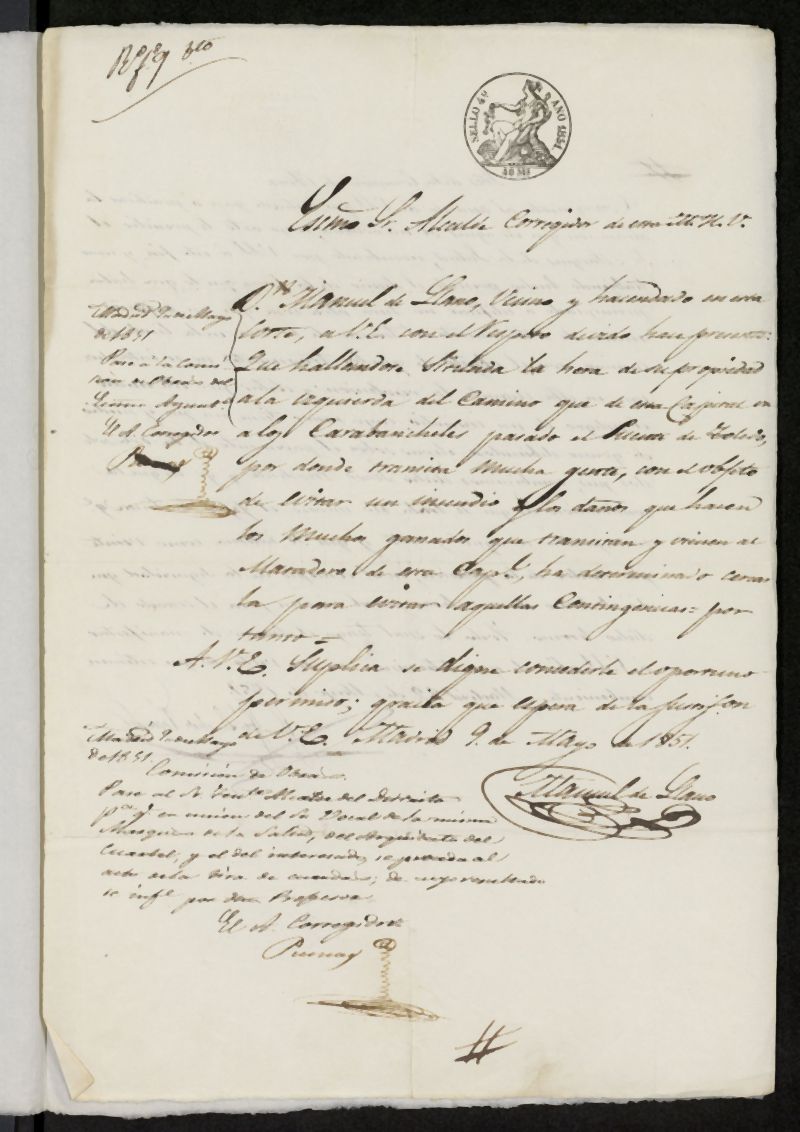 SELLO 4º AÑO 1851
40 MS
Esemo Sr. Alcalde Corregidor de esta M. H. V.
Dn. Manuel de Llano, Vecino y hacendado en esta
Corte, a V. E. con el respeto devido hace presente:
Que hallandose situada la hera de su propiedad
a la izquierda del Camino que de esta Capital va
a los Carabancheles pasado el Puente de Toledo,
por donde transita mucha gente, con el objeto
de evitar un incendio y los daños que hacen
los muchos ganados que transitan y vienen al
Matadero de esta Capl. ha determinado cercar
la para evitar aquellas Contingencias = por
tanto =
A. V. E. Suplica se digne concederle el oportuno
permiso; gracia que espera de la
de V. E. Madrid 9 de Mayo de 1851.
Manuel de Llano
Madrid 9 de Mayo
de 1851
Pase á la Comi
sion de Obras del
Ayunto.
El A. Corregidor
Madrid 9 de Mayo
de 1851.
Comision de Obras.
Pase al Sr Tente. Alcalde del Distrito
pa. q. en union del Sr Vocal de la misma
Marques de la Salud, del Arquitecto del
Cuartel, y el del interesado, se proceda al
acto de la tira de cuerdas; de cuyo resultado
se infe. por dhos Profesores.
El A. Corregidor